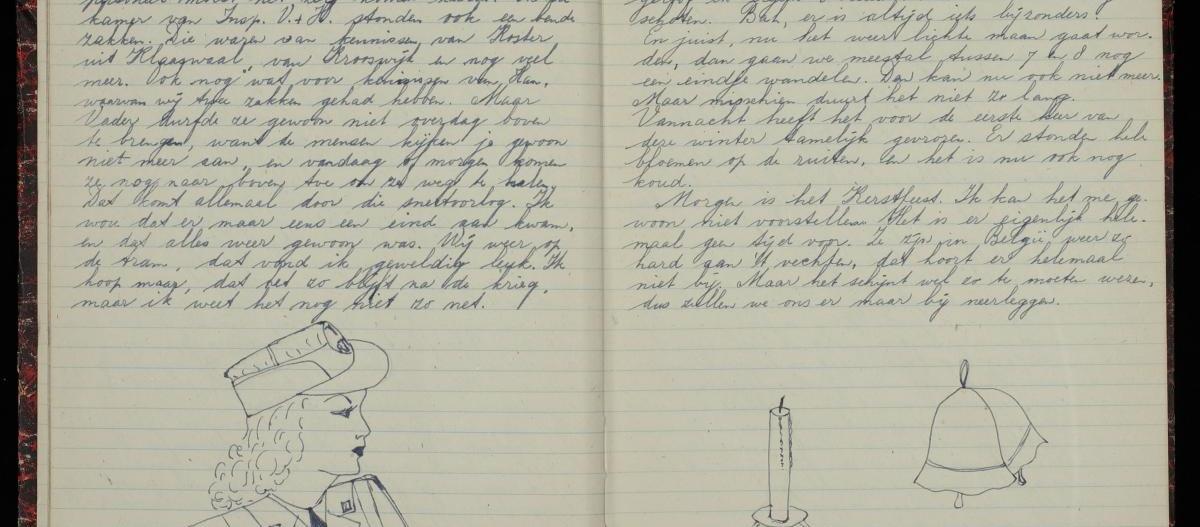 kamer van Insp. V. + H. stonden ook een bende
zakken. Die waren van kennissen, van Koster
uit Klaaswaal, van Krooswijk en nog veel
meer. Ook nog wat voor kennissen van Han,
waarvan wij twee zakken gehad hebben. Maar
Vader durfde ze gewoon niet overdag boven
te brengen, want de mensen kijken je gewoon
niet meer aan, en vandaag of morgen komen
ze nog naar boven toe om ze weg te halen.
Dat komt allemaal door die sneltoorlog. Ik
wou dat er maar eens een eind aan kwam,
en dat alles weer gewoon was. Wij weer op
de tram, dat vond ik geweldig leuk. Ik
hoop maar, dat het zo blijft na de krieg,
maar ik weet het nog niet zo net.
schoten. Bah, er is altijd iets bijzonders!
En juist, nu het weer lichte maan gaat wor-
den, dan gaan we meestal tussen 7 en 8 nog
een eindje wandelen. Dan kan nu ook niet meer.
Maar misschien duurt het niet zo lang.
Vannacht heeft het voor de eerste keer van
deze winter tamelijk gevrozen. Er stonden hele
bloemen op de ruiten, en het is nu ook nog
koud.
Morgen is het Kerstfeest. Ik kan het me ge-
woon niet voorstellen. Het is er eigenlijk hele-
maal geen tijd voor. Ze zijn in België weer zo
hard aan 't vechten, dat hoort er helemaal
niet bij. Maar het schijnt wel zo te moeten wezen,
dus zullen we ons er maar bij neerleggen.